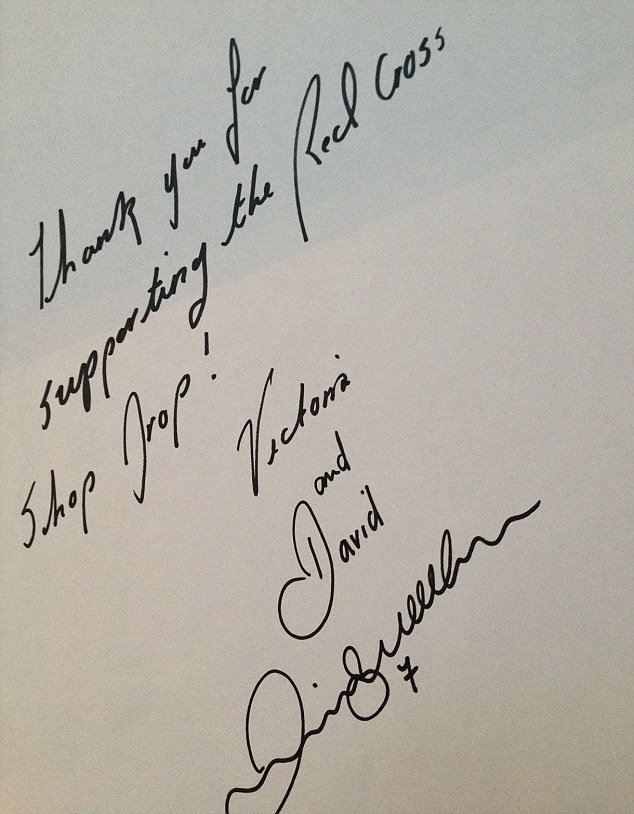 Thank you for
supporting the Red Cross
Shop Drop!
Victoria
and
David
7